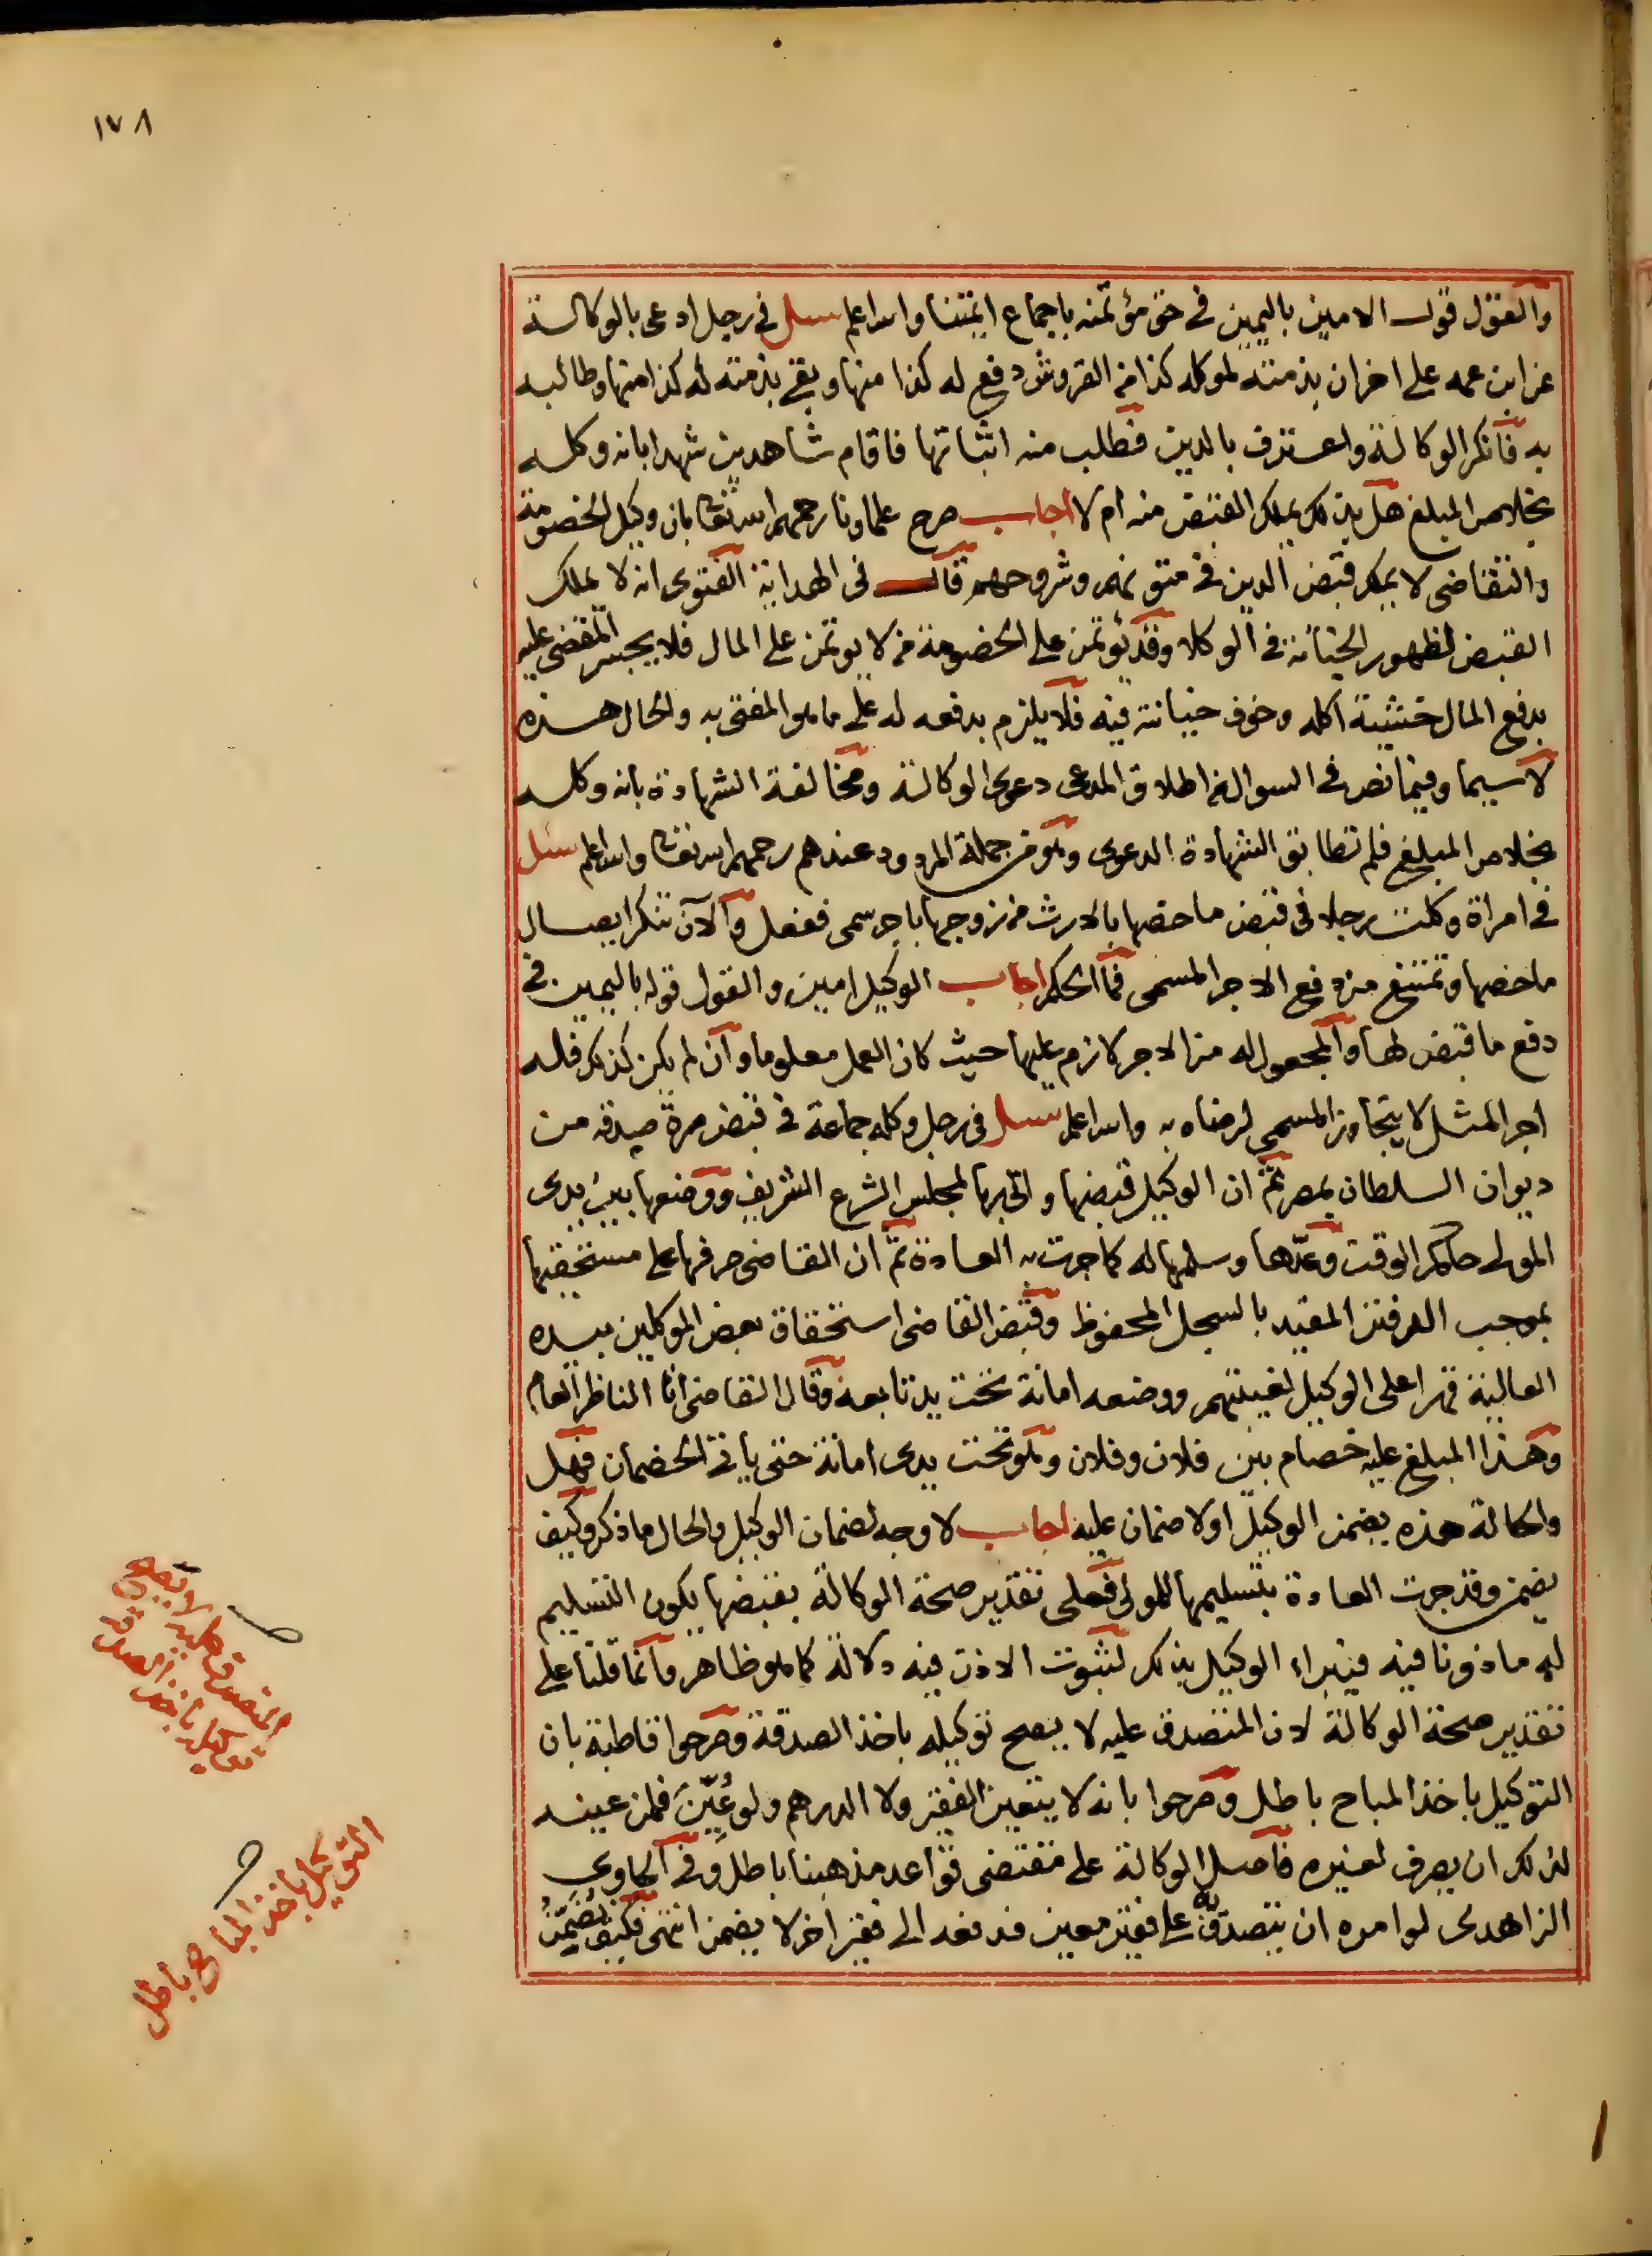 ١٧٨
والقول قول الامين باليمين في حق مؤتمنه باجماع ايمتنا والله اعلم سىل في رجل ادعى بالوكالة
عن ابن عمه على اخر ان بذمته لموكله كذا من القروش دفع له كذا منها وبقي بذمته له كذا منها وطالبه
به فانكر الوكالة واعترف بالدين فطلب منه اثباتها فاقام شاهدين شهدا بانه وكله
بخلاص المبلغ هل بذلك يملك القبض منه ام لا اجاب صرح علماونا رحمهم الله تعالى بان وكيل الخصومة
والتقاضى لا يملك قبض الدين في متونهم وشروحهم قال في الهداية الفتوى انه لا يملك
القبض لظهور الخيانة في الوكلا وقد يؤتمن على الخصومة من لا يوتمن على المال فلا يجبر المقضى عليه
بدفع المال خشية اكله وخوف خيانته فيه فلا يلزم بدفعه له على ما هو المفتى به والحال هذه
لا سيما وفيما نص في السوال من اطلاق المدعى دعوى الوكالة ومخالفة الشهادة بانه وكله
بخلاص المبلغ فلم تطابق الشهادة الدعوى وهو من جملة المردود عندهم رحمهم الله تعالى والله اعلم سئل
في امراة وكلت رجلا في قبض ما خصها بالارث من زوجها باجر سمى ففعل والآن تنكر ايصال
ما خصها وتمتنع من دفع الاجر المسمى فما الحكم اجاب الوكيل امين والقول قوله باليمين في
دفع ما قبض لها والمجعول له من الاجر لازم عليها حيث كان العمل معلوما وان لم يكن كذلك فله
اجر المثل لا يتجاوز المسمى لرضاه به والله اعلم سىل في رجل وكله جماعة في قبض صرة صدقه من
ديوان السلطان بمصر ثم ان الوكيل قبضها واتى بها لمجلس الشرع الشريف ووضعها بين يدى
المولى حاكم الوقت وعدّها وسلمها له كما جرت به العادة ثم ان القاضى صرفها على مستحقيها
بموجب الدفتر المقيد بالسجل المحفوظ وقبض القاضى استحقاق بعض الموكلين بيده
العالية قهرا على الوكيل لغيبتهم ووضعه امانة تحت يد تابعه وقال القاضى انا الناظر العام
وهذا المبلغ عليه خصام بين فلان وفلان وهو تحت يدى امانة حتى ياتى الخصمان فهل
والحالة هذه يضمن الوكيل اولا ضمان عليه اجاب لا وجه لضمان الوكيل والحال ما ذكر وكيف
يضمن وقد جرت العادة بتسليمها للمولى فعلى تقدير صحة الوكالة بقبضها يكون التسليم
له ماذونا فيه فيبراء الوكيل بذلك لثبوت الاذن فيه دلالة كما هو ظاهر وانما قلنا على
تقدير صحة الوكالة لان المتصدق عليه لا يصح توكيله باخذ الصدقة وصرحوا قاطبة بان
التوكيل باخذ المباح باطل وصرحوا بانه لا يتعين الفقير ولا الدرهم ولو عُيِّنَ فلمن عينه
لذلك ان يصرف لغيره فاصل الوكالة على مقتضى قواعد مذهبنا باطل وفي الحاوى
الزاهدى لو امره ان يتصدق به على فقير معين فدفعه الى فقير اخر لا يضمن انتهى فكيف يُضَمَّنُ
المتصدق عليه لا يصح
توكيله باخذ الصدقة
التوكيل باخذ المباح باطل